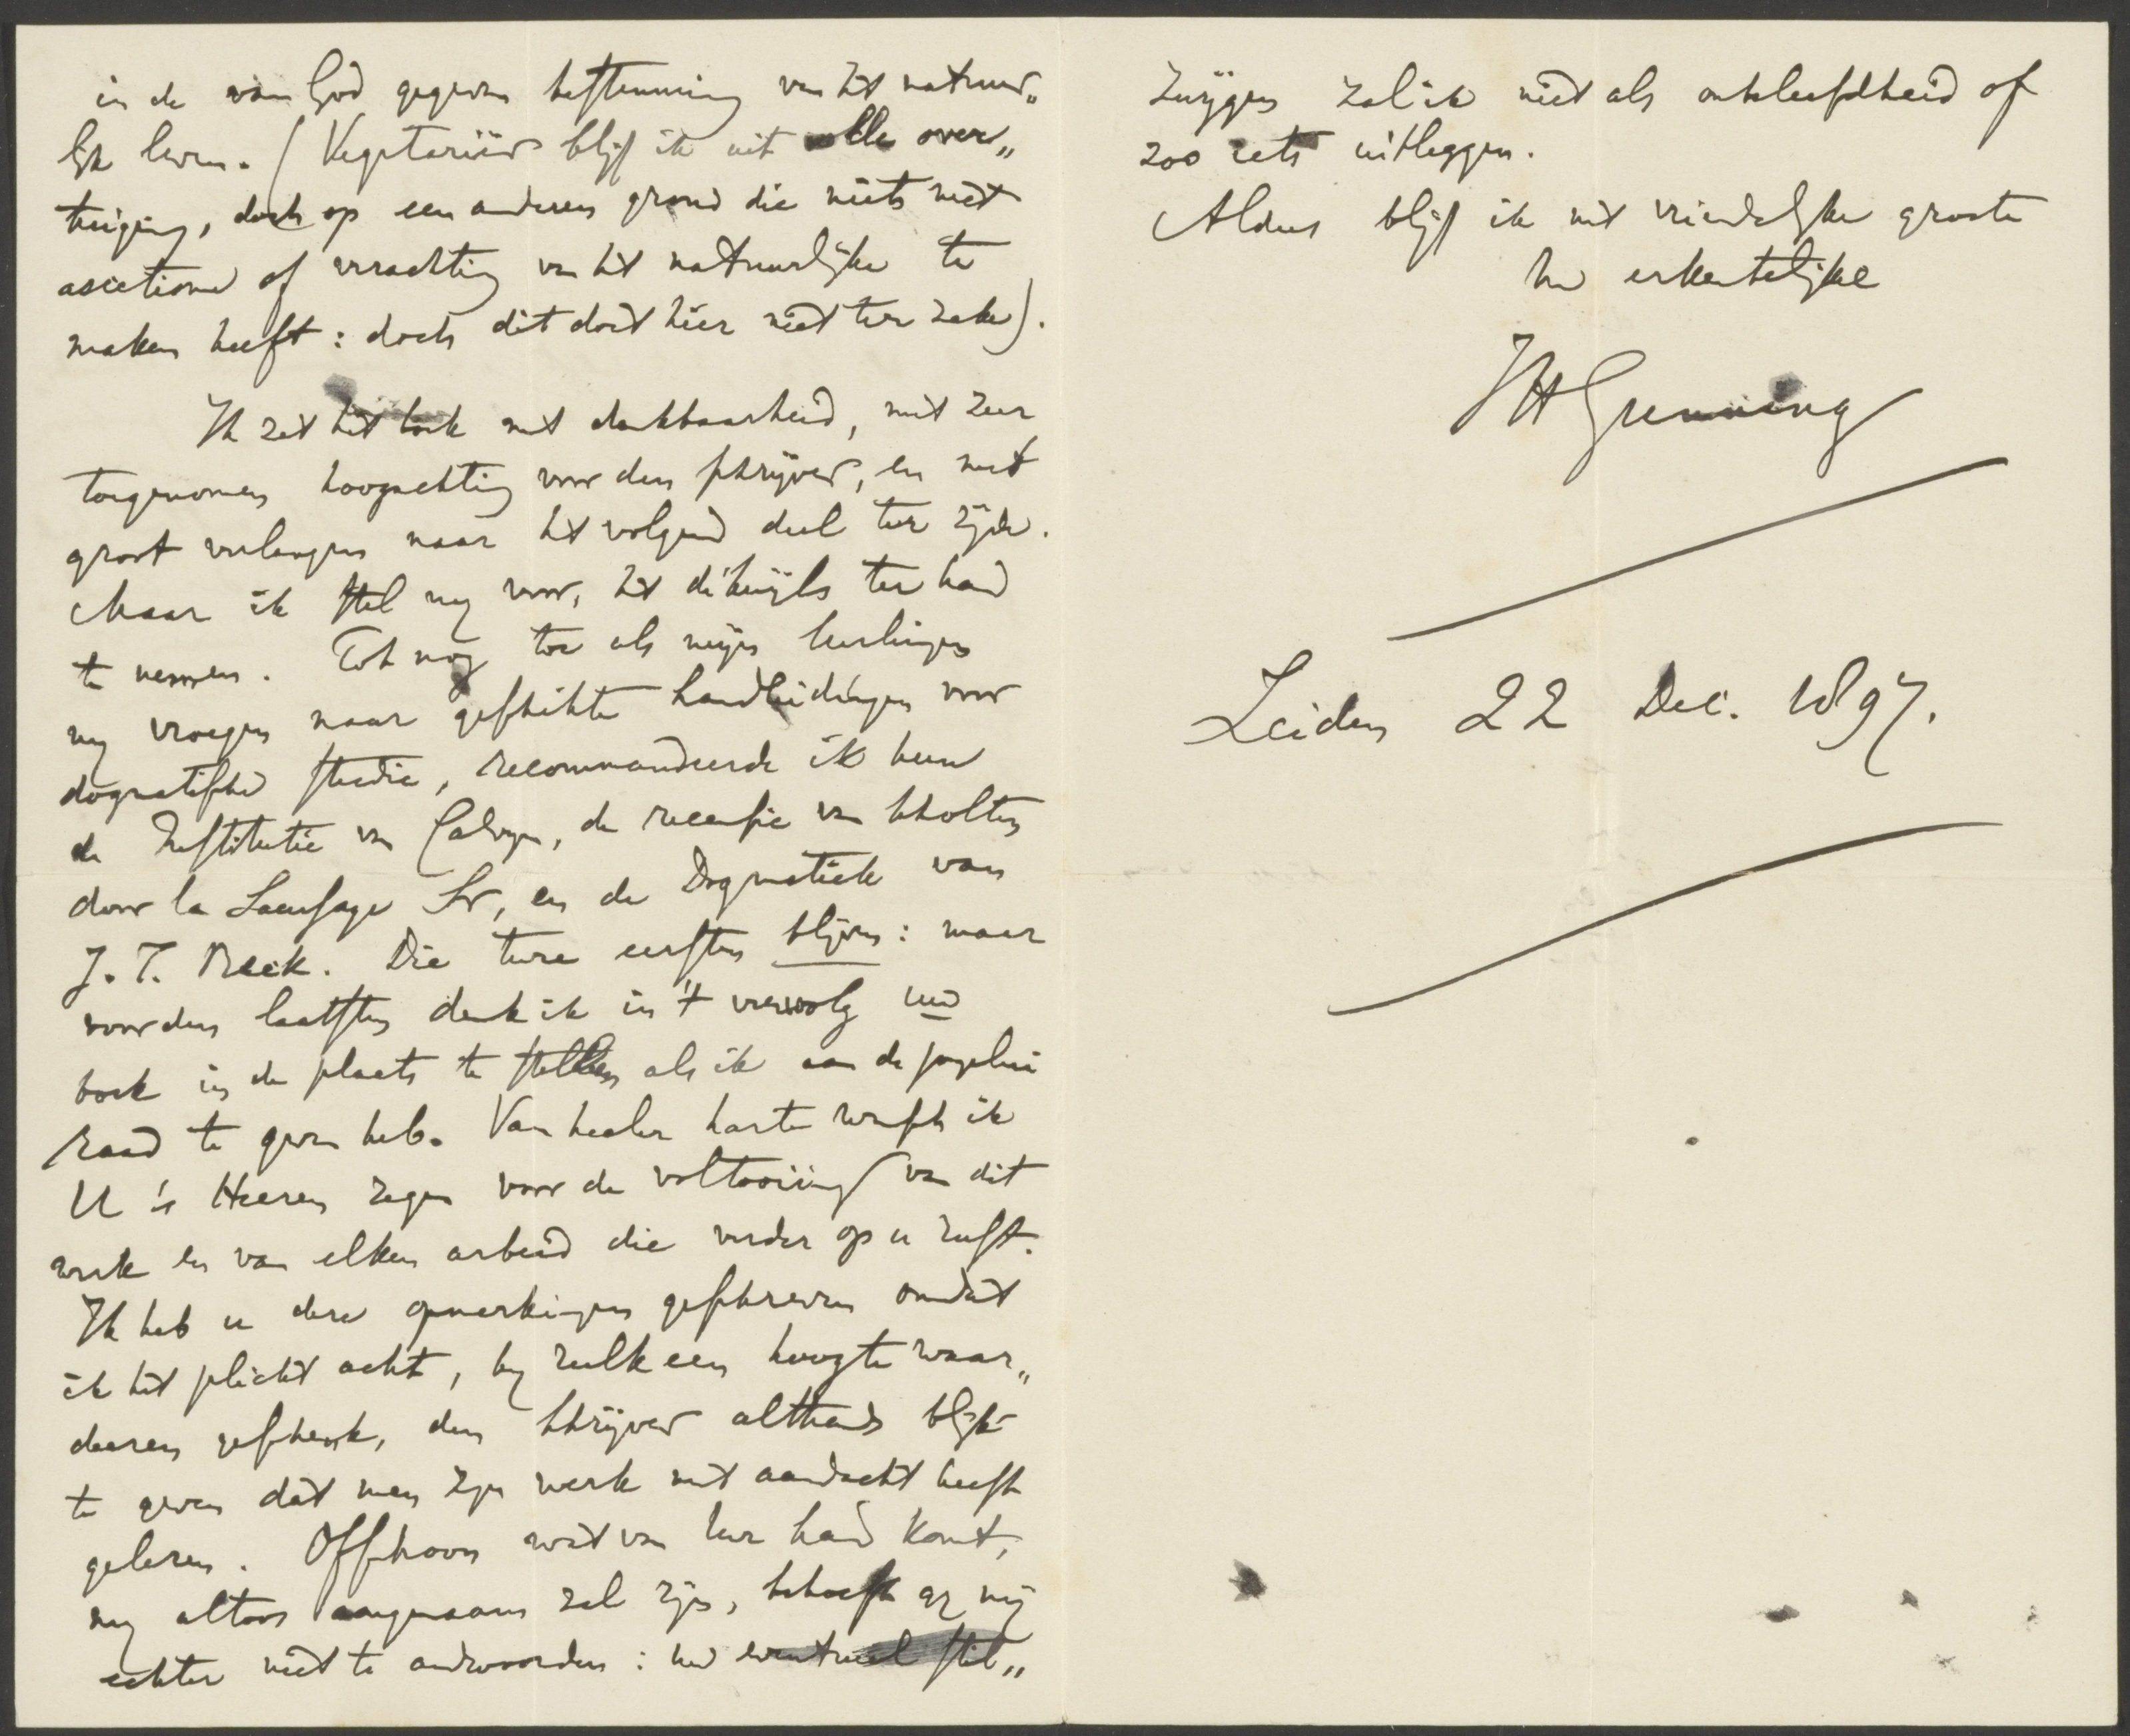 in de van God gegeven bestemming van het natuur„
lijk leven. (Vegetariër blijf ik uit volle over„
tuiging, doch op een anderen grond die niets met
ascetisme of verachting van het natuurlijke te
maken heeft: doch dit doet hier niet ter zake).
Ik zet het boek met dankbaarheid, met zeer
toegenomen hoogachting voor den schrijver, en met
groot verlangen naar het volgend deel ter zijde.
Maar ik stel mij voor, het dikwijls ter hand
te nemen. Tot nog toe als mijn leerlingen
mij vroegen naar geschikte handleidingen voor
dogmatische studie, recommandeerde ik hun
de Institutie van Calvijn, de recensie van Scholten
door la Saussaye Sr, en de Dogmatiek van
J. T. Beck. Die twee eersten blijven: maar
voor den laatsten denk ik in 't vervolg uw
boek in de plaats te stellen als ik aan de jongelui
raad te geven heb. Van heeler harte wensch ik
U 's Heeren zegen voor de voltooiing van dit
werk en van elken arbeid die verder op u rust.
Ik heb u deze opmerkingen geschreven omdat
ik het plicht acht, bij zulk een hoogte waar„
deeren geschenk, den schrijver althands blijk
te geven dat men zijn werk met aandacht heeft
gelezen. Ofschoon wat van uw hand komt,
mij altoos aangenaam zal zijn, behoeft gij mij
echter niet te andwoorden: uw eventueel stil„
zwijgen zal ik niet als onbeleefdheid of
zoo iets uitleggen.
Aldus blijf ik met vriendelijke groete
Uw erkentelijke
JHGunning
Leiden 22 Dec. 1897.